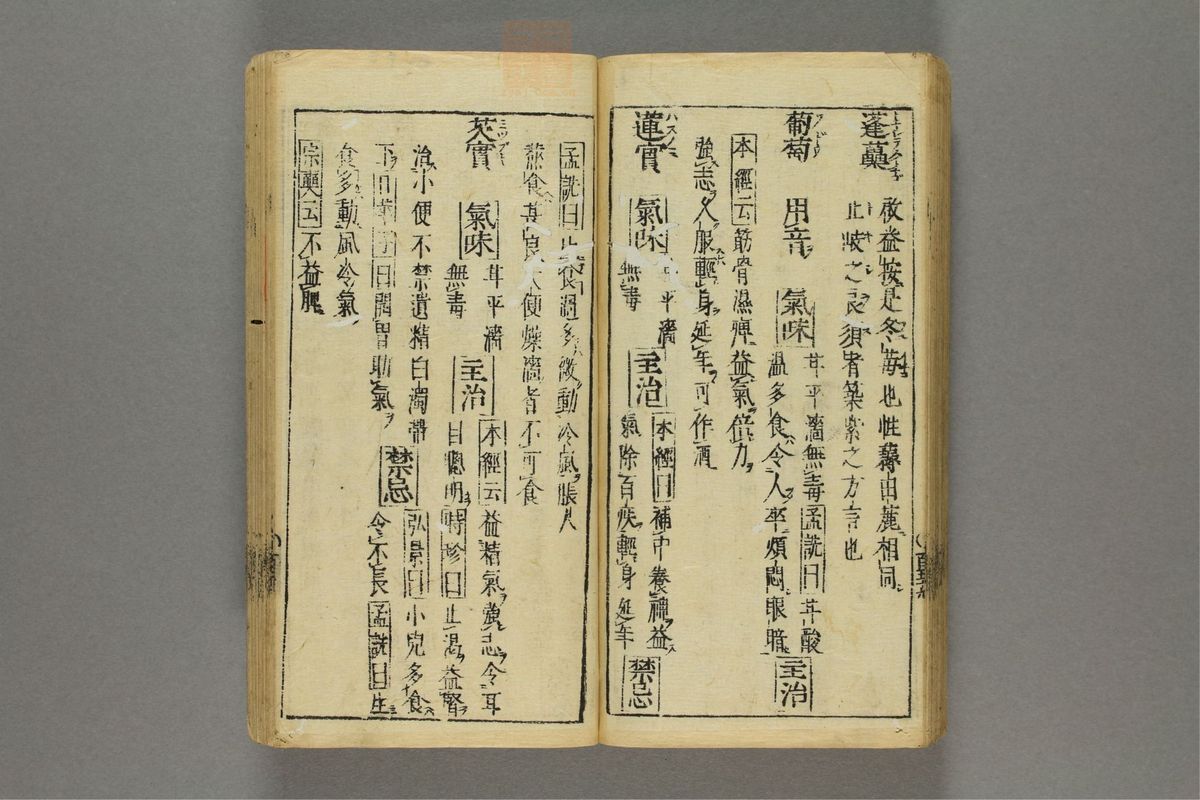 蓬虆
啟益按是冬苺也性蘽由蔍相同
止岐之良須者築紫之方言也
葡萄 用音 氣味 甘平濇無毒孟詵曰甘酸
溫多食令人卒煩悶眼暗 主治
本經云筋骨濕痺益氣倍力
強志人服輕身延年可作酒
蓮實 氣味 甘平濇
無毒 主治 本經曰補中養神益
氣除百疾輕身延年 禁忌
孟詵曰 食過多微動冷氣脹人
蒸食甚良大便燥濇者不可食
芡實 氣味 甘平濇
無毒 主治 本經云益精氣強志令耳
目聰明時珍曰止渴益腎
治小便不禁遺精白濁帶
下 曰開胃助氣 禁忌 弘景曰小兒多食
令不長孟詵曰生
食多動風冷氣
宗奭云不益脾